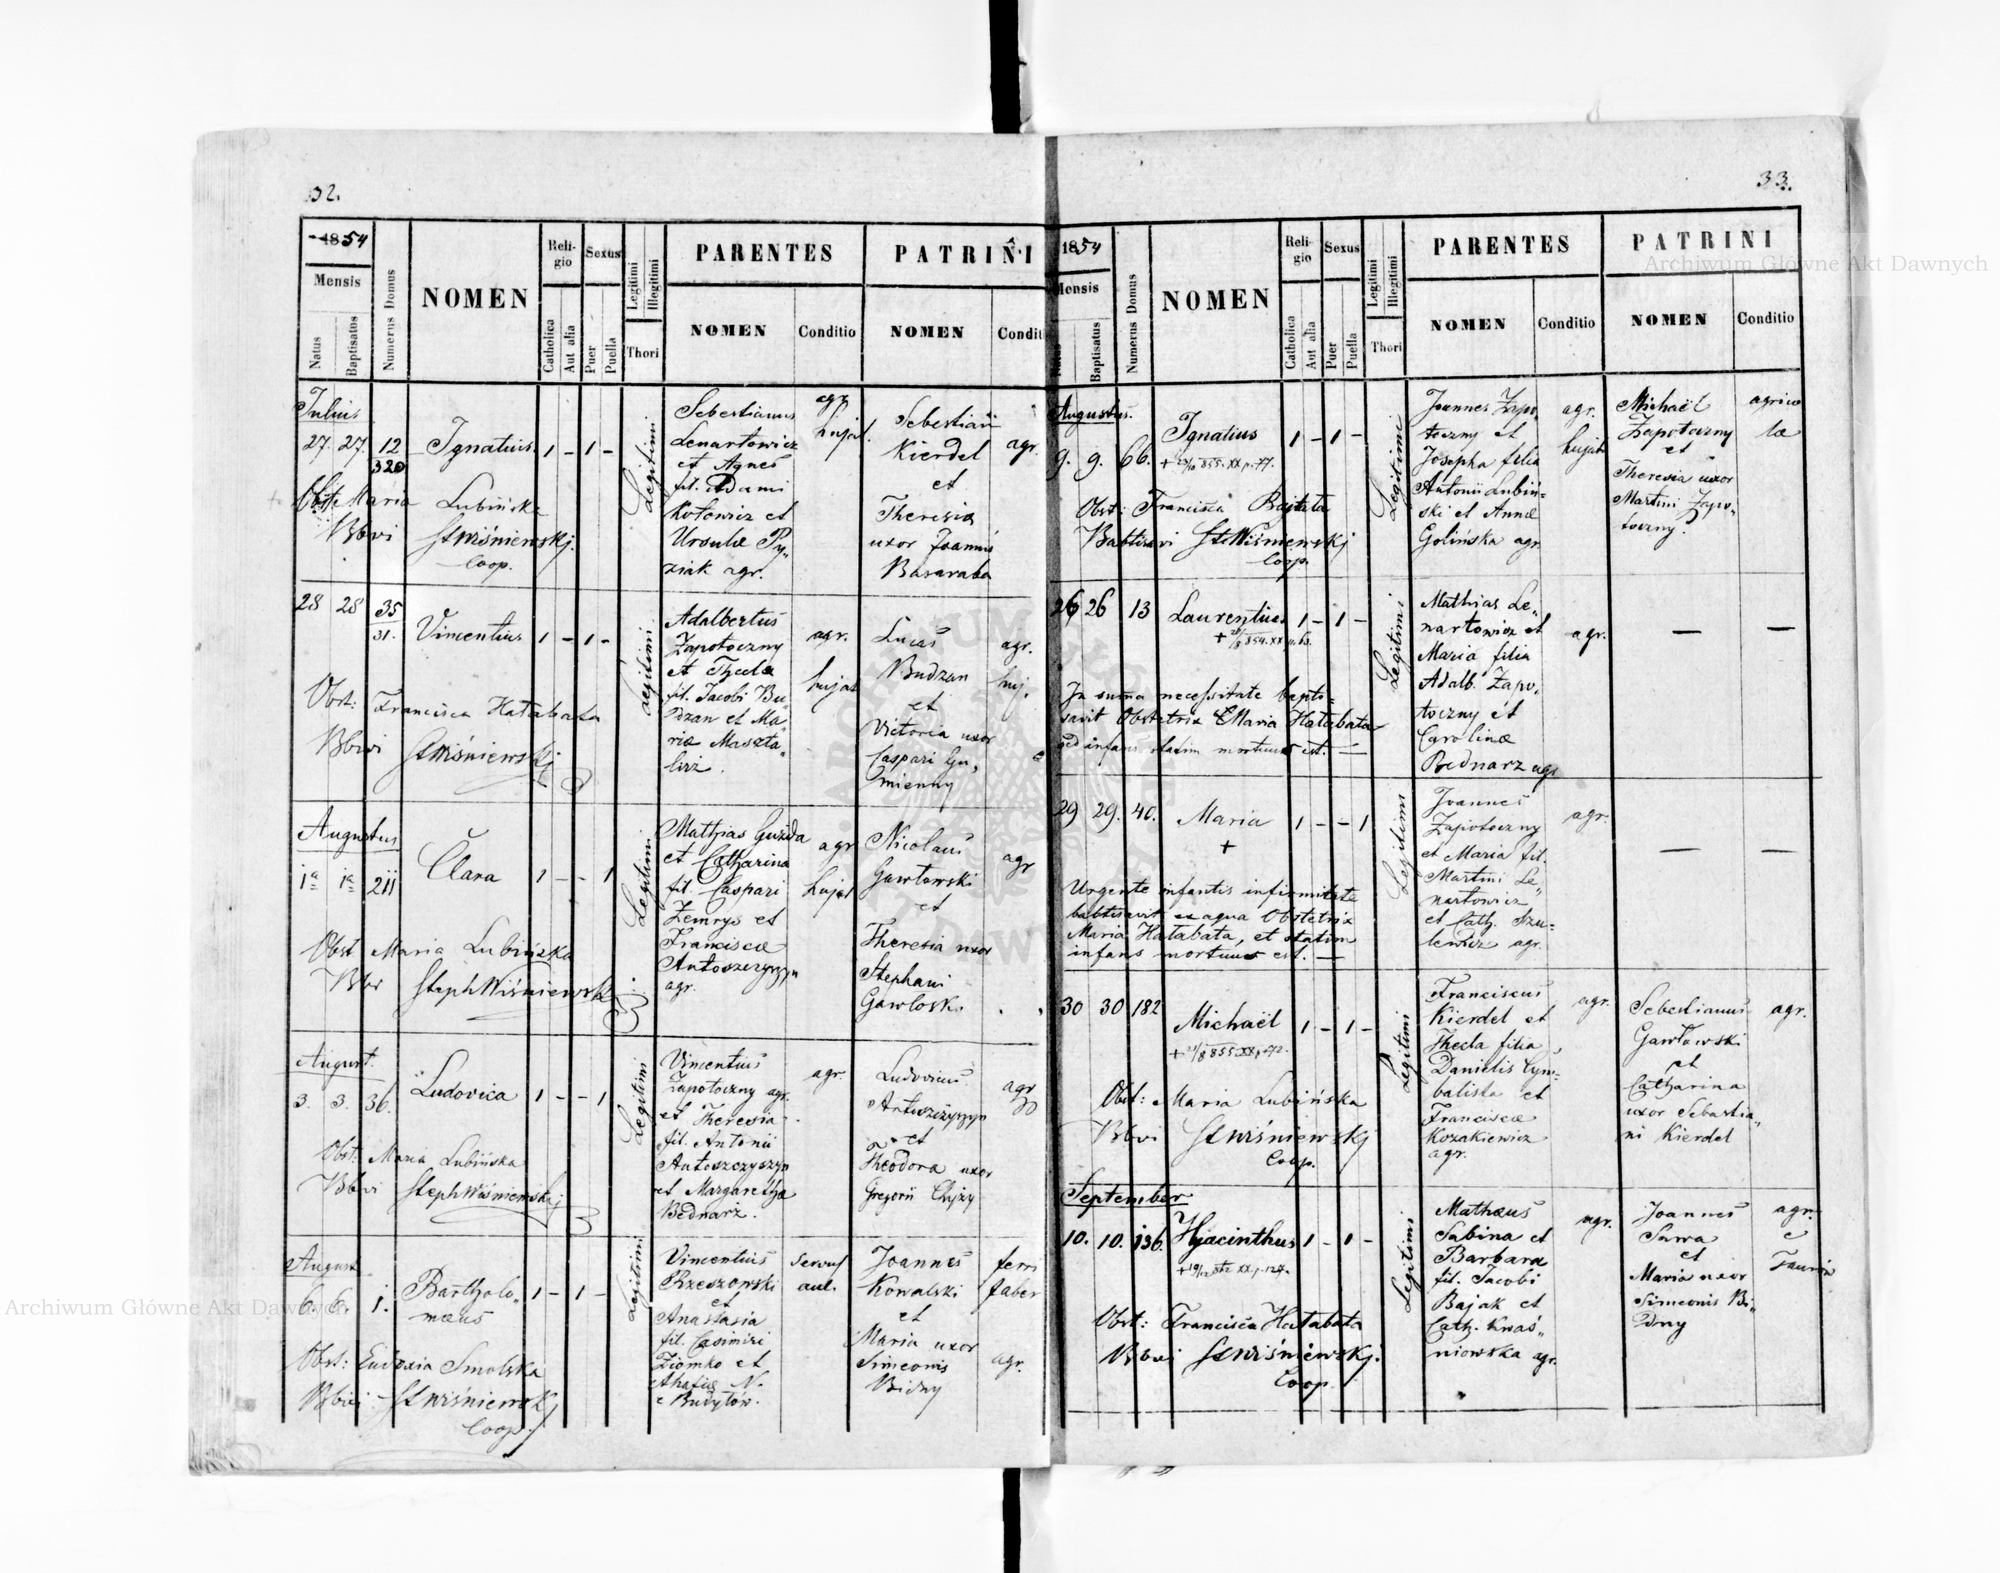 32.
1854
Mensis
Natus
Baptisatus
Numerus Domus
NOMEN
Religio
Catholica
Aut alia
Sexus
Puer
Puella
Legitimi
Illegitimi
Thori
PARENTES
NOMEN
Conditio
PATRINI
NOMEN
Condit
Julius
27. 27. 12
320
Ignatius 1 - 1 -
Obst: Maria Lubińska
Bbvi StWiśniewskj
Coop.
Legitimi
Sebestianus
Lenartowicz
et Agnes
fil. Adami
Kotowicz et
Ursulæ Py„
ziak agr.
agr
hujat.
Sebestian
Kierdel
et
Theresia
uxor Joannis
Basaraba
agr.
28 28 35
31.
Vincentius 1 - 1 -
Obst: Francisca Hatabata
Bbvi StWiśniewskj
Legitimi
Adalbertus
Zapotoczny
et Thecla
fil. Jacobi Bu„
dzan et Ma„
riæ Maszta„
lirz.
agr.
hujat
Lucas
Budzan
et
Victoria uxor
Caspari Gu„
mienny
agr.
huj.
Augustus
1a 1a 211
Clara 1 - - 1
Obst Maria Lubińska
Bbv StephWiśniewskj
Legitimi
Mathias Guzda
et Catharina
fil. Caspari
Zemrys et
Franciscæ
Antoszczyszyn
agr.
agr
hujat
Nicolaus
Gawłowski
et
Theresia uxor
Stephani
Gawłoski
agr
August.
3. 3. 36.
Ludovica 1 - - 1
Obst: Maria Lubińska
Bbvi StephWiśniewskj
Legitimi
Vincentius
Zapotoczny agr.
et Theresia
fil. Antonii
Antoszczyszyn
et Margarethæ
Bednarz.
agr.
Ludovicus
Antoszczyszyn
et
Theodora uxor
Gregorii Chyzy
agr
August
6. 6. 1.
Bartholo„
mæus 1 - 1 -
Obst: Eudoxia Smolska
Bbvi StWiśniewskj
Coop.
Legitimi
Vincentius
Rzeszowski
et
Anastasia
fil. Casimiri
Ziomko et
Ahafiæ N.
e Budyłów.
servus
aul.
Joannes
Kowalski
et
Maria uxor
Simeonis
Bidny
ferri
faber
agr.
33.
1854
Mensis
Natus
Baptisatus
Numerus Domus
NOMEN
Religio
Catholica
Aut alia
Sexus
Puer
Puella
Legitimi
Illegitimi
Thori
PARENTES
NOMEN
Conditio
PATRINI
NOMEN
Conditio
Augustus.
9. 9. 66.
Ignatius 1 - 1 -
Obst: Francisca Bajtala
Babtisavi StWiśniewskj
Coop.
Legitimi
Joannes Zapo„
toczny et
Josepha filia
Antonii Lubiń„
ski et Annæ
Golińska agr.
agr.
hujat
Michaël
Zapotoczny
et
Theresia uxor
Martini Zapo„
toczny.
agrico
læ
26 26 13
Laurentius 1 - 1 -
In suma necessitate bapti„
savit Obstetrix Maria Hatabata
sed infans statim mortuus est. —
Legitimi
Mathias Le„
nartowicz et
Maria filia
Adalb. Zapo„
toczny et
Carolinæ
Bednarz agr
agr.
— —
29 29. 40.
Maria 1 - - 1
+
Urgente infantis infirmitate
babtisavit ex aqua Obstetrix
Maria Hatabata, et statim
infans mortuus est. —
Legitimi
Joannes
Zapotoczny
et Maria fil.
Martini Le„
nartowicz
et Cath. Szu„
lewicz agr.
agr.
— —
30 30 182
Michaël 1 - 1 -
Obst: Maria Lubińska
Bbvi StWiśniewskj
Coop.
Legitimi
Franciscus
Kierdel et
Thecla filia
Danielis Cym„
balista et
Franciscæ
Kozakiewicz
agr.
agr.
Sebestianus
Gawłowski
et
Catharina
uxor Sebastia„
ni Kierdel
agr.
September
10. 10. 136.
Hyacinthus 1 - 1 -
Obst: Francisca Hatabata
Bbvi StWiśniewskj.
Coop.
Legitimi
Mathæus
Sabina et
Barbara
fil. Jacobi
Bajak et
Cath. Kwaś„
niowska agr.
agr.
Joannes
Sawa
et
Maria uxor
Simeonis Bi„
dny
agr.
e
Archiwum Główne Akt Dawnych
Archiwum Główne Akt Dawnych